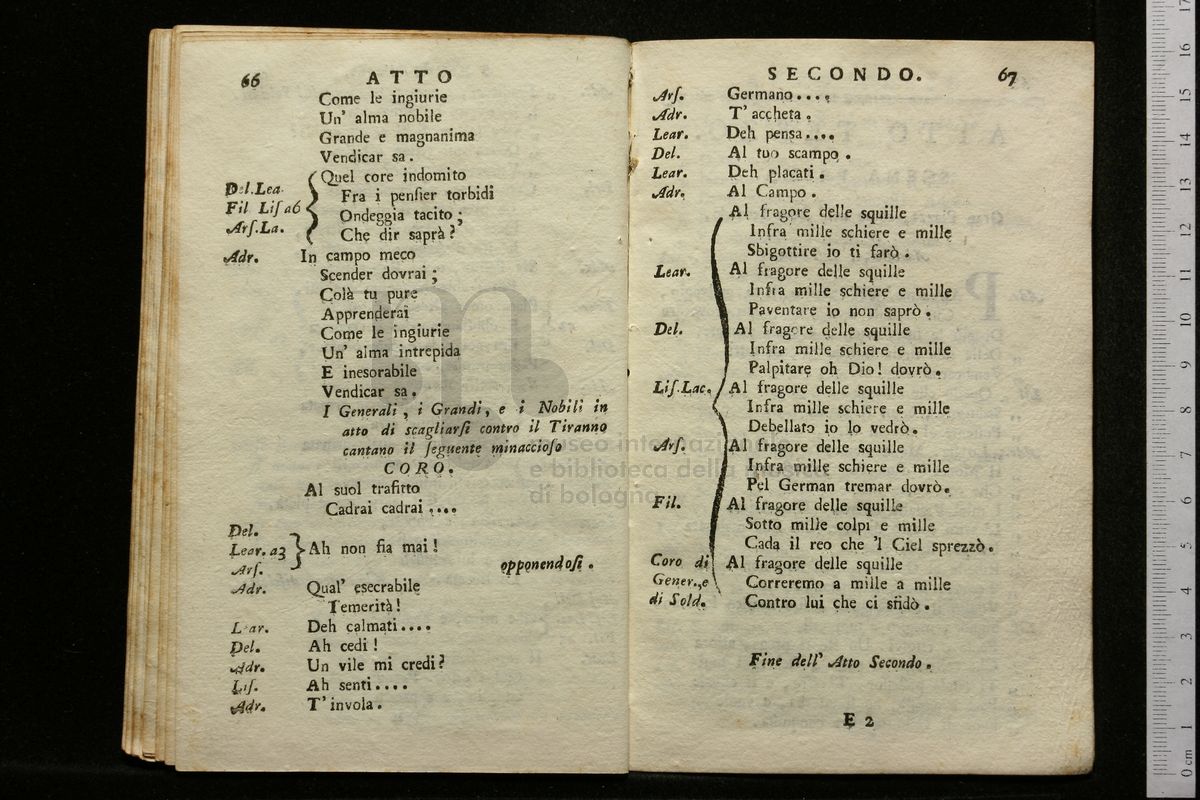 66 ATTO
Come le ingiurie
Un' alma nobile
Grande e magnanima
Vendicar sa.
Del.Lea. Quel core indomito
Fil Lisa6 Fra i pensier torbidi
Ars.La. Ondeggia tacito;
Che dir saprà?
Adr. In campo meco
Scender dovrai;
Colà tu pure
Apprenderai
Come le ingiurie
Un' alma intrepida
E inesorabile
Vendicar sa.
I Generali, i Grandi, e i Nobili in
atto di scagliarsi contro il Tiranno
cantano il seguente minaccioso
CORO.
Al suol trafitto
Cadrai cadrai....
Del.
Lear. a3 Ah non fia mai!
Ars. opponendosi.
Adr. Qual' esecrabile
Temerità!
Lear. Deh calmati....
Del. Ah cedi!
Adr. Un vile mi credi?
Lis. Ah senti....
Adr. T' invola.
SECONDO. 67
Ars. Germano....
Adr. T' accheta.
Lear. Deh pensa....
Del. Al tuo scampo.
Lear. Deh placati.
Adr. Al Campo.
Al fragore delle squille
Infra mille schiere e mille
Sbigottire io ti farò.
Lear. Al fragore delle squille
Infra mille schiere e mille
Paventare io non saprò.
Del. Al fragore delle squille
Infra mille schiere e mille
Palpitare oh Dio! dovrò.
Lis.Lac. Al fragore delle squille
Infra mille schiere e mille
Debellato io lo vedrò.
Ars. Al fragore delle squille
Infra mille schiere e mille
Pel German tremar dovrò.
Fil. Al fragore delle squille
Sotto mille colpi e mille
Cada il reo che 'l Ciel sprezzò.
Coro di Al fragore delle squille
Gener., e Correremo a mille a mille
di Sold. Contro lui che ci sfidò.
Fine dell' Atto Secondo.
E 2
museo internazionale
e biblioteca della musica
di bologna
0 cm 1 2 3 4 5 6 7 8 9 10 11 12 13 14 15 16 17